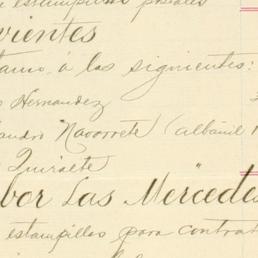 estampillas postales
vientes
tamo, á los siguientes:
Hernandez
andro Navarrete (albañil
Quirate
bor Las Mercedes
estampillas para contrat